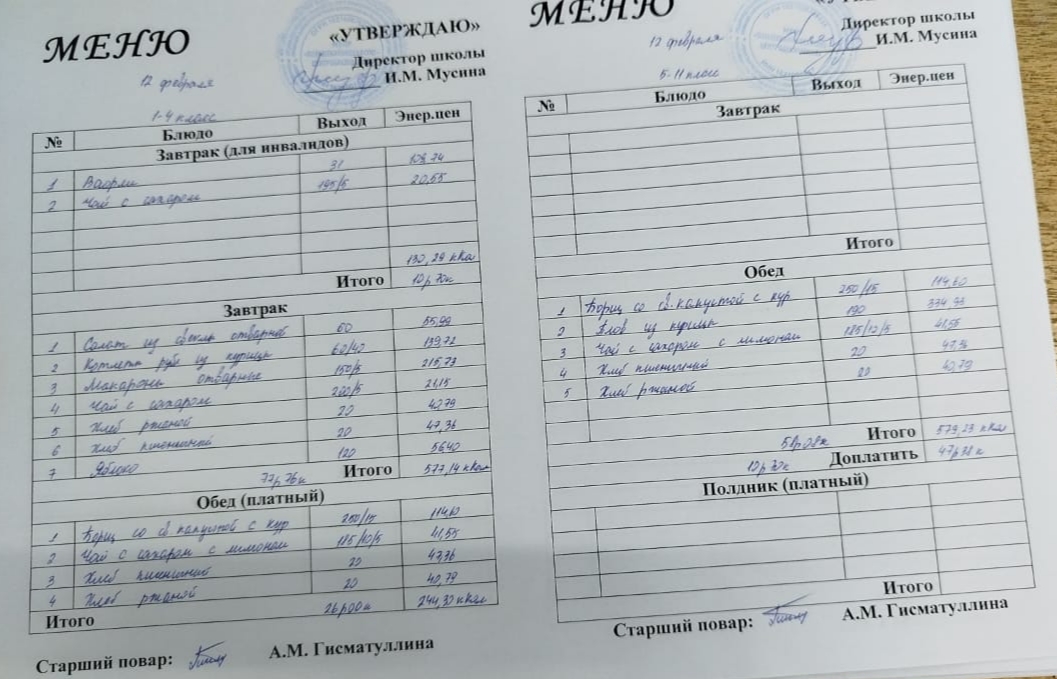 МЕНЮ
«УТВЕРЖДАЮ»
Директор школы
И.М. Мусина
12 февраля
1-4 класс
№ Блюдо Выход Энер.цен
Завтрак (для инвалидов)
1 Вафли 31 108,74
2 Чай с сахаром 195/5 20,55
130,29 кКал
Итого 10р 70к
Завтрак
1 Салат из свеклы отварной 60 55,99
2 Котлеты руб из курицы 60/40 139,72
3 Макароны отварные 150/5 215,73
4 Чай с сахаром 200/5 21,15
5 Хлеб ржаной 20 40,79
6 Хлеб пшеничный 20 47,36
7 Яблоко 120 56,40
77р,76к Итого 577,14 кКал
Обед (платный)
1 Борщ со св. капустой с кур 250/15 114,60
2 Чай с сахаром с лимоном 185/10/5 41,55
3 Хлеб пшеничный 20 47,36
4 Хлеб ржаной 20 40,79
Итого 26р00к 244,30 кКал
Старший повар: А.М. Гисматуллина
МЕНЮ
Директор школы
И.М. Мусина
12 февраля
5-11 класс
№ Блюдо Выход Энер.цен
Завтрак
Итого
Обед
1 Борщ со св. капустой с кур 250/15 114,60
2 Плов из курицы 190 334,93
3 Чай с сахаром с лимоном 185/12/5 41,55
4 Хлеб пшеничный 20 47,36
5 Хлеб ржаной 20 40,79
58р08к Итого 579,23 кКал
10р70к Доплатить 47р38к
Полдник (платный)
Итого
Старший повар: А.М. Гисматуллина